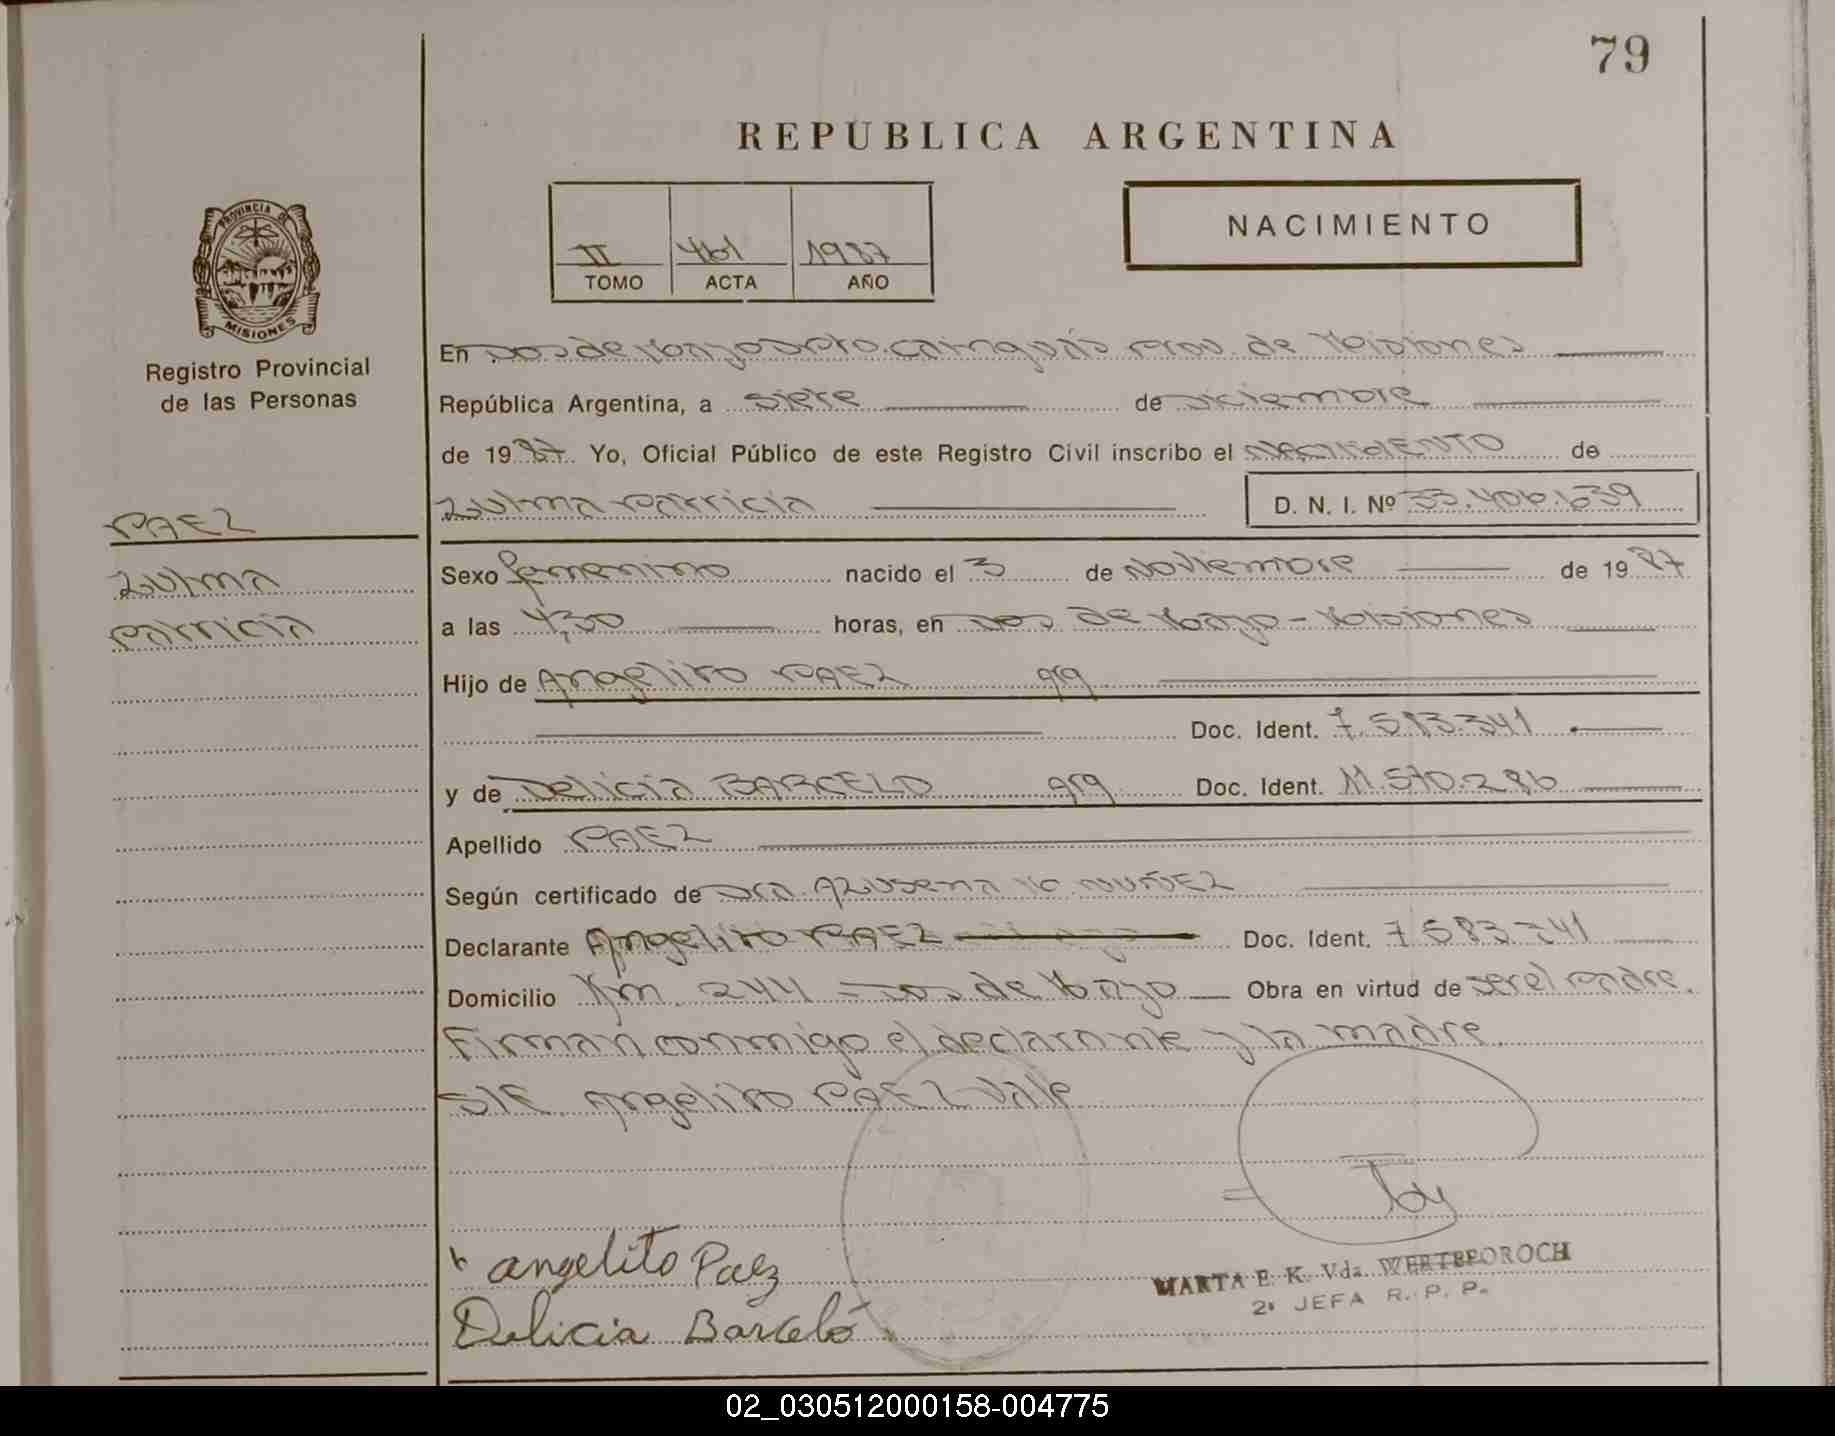 79
REPUBLICA ARGENTINA
PROVINCIA DE
MISIONES
Registro Provincial
de las Personas
II 461 1987
TOMO ACTA AÑO
NACIMIENTO
En Dos de Mayo Dpto. Cainguás Prov. de Misiones
República Argentina, a siete de Diciembre
de 1987. Yo, Oficial Público de este Registro Civil inscribo el NACIMIENTO de
Zulma Patricia D. N. I. Nº 33.406.639
PAEZ
Zulma
Patricia
Sexo femenino nacido el 3 de Noviembre de 1987
a las 4,30 horas, en Dos de Mayo - Misiones
Hijo de Angelito PAEZ arg
Doc. Ident. 7.583.341
y de Delicia BARCELO arg Doc. Ident. 11.570.286
Apellido PAEZ
Según certificado de Dra. Azusena M. NUÑEZ
Declarante Angelito PAEZ Doc. Ident. 7.583.341
Domicilio Km. 244 - Dos de Mayo Obra en virtud de ser el padre.
Firman conmigo el declarante y la madre.
S/R Angelito PAEZ Vale
angelito Paez
Delicia Barceló
MARTA E. K. Vda. WERTBFOROCH
2ª JEFA R. P. P.
02_030512000158-004775